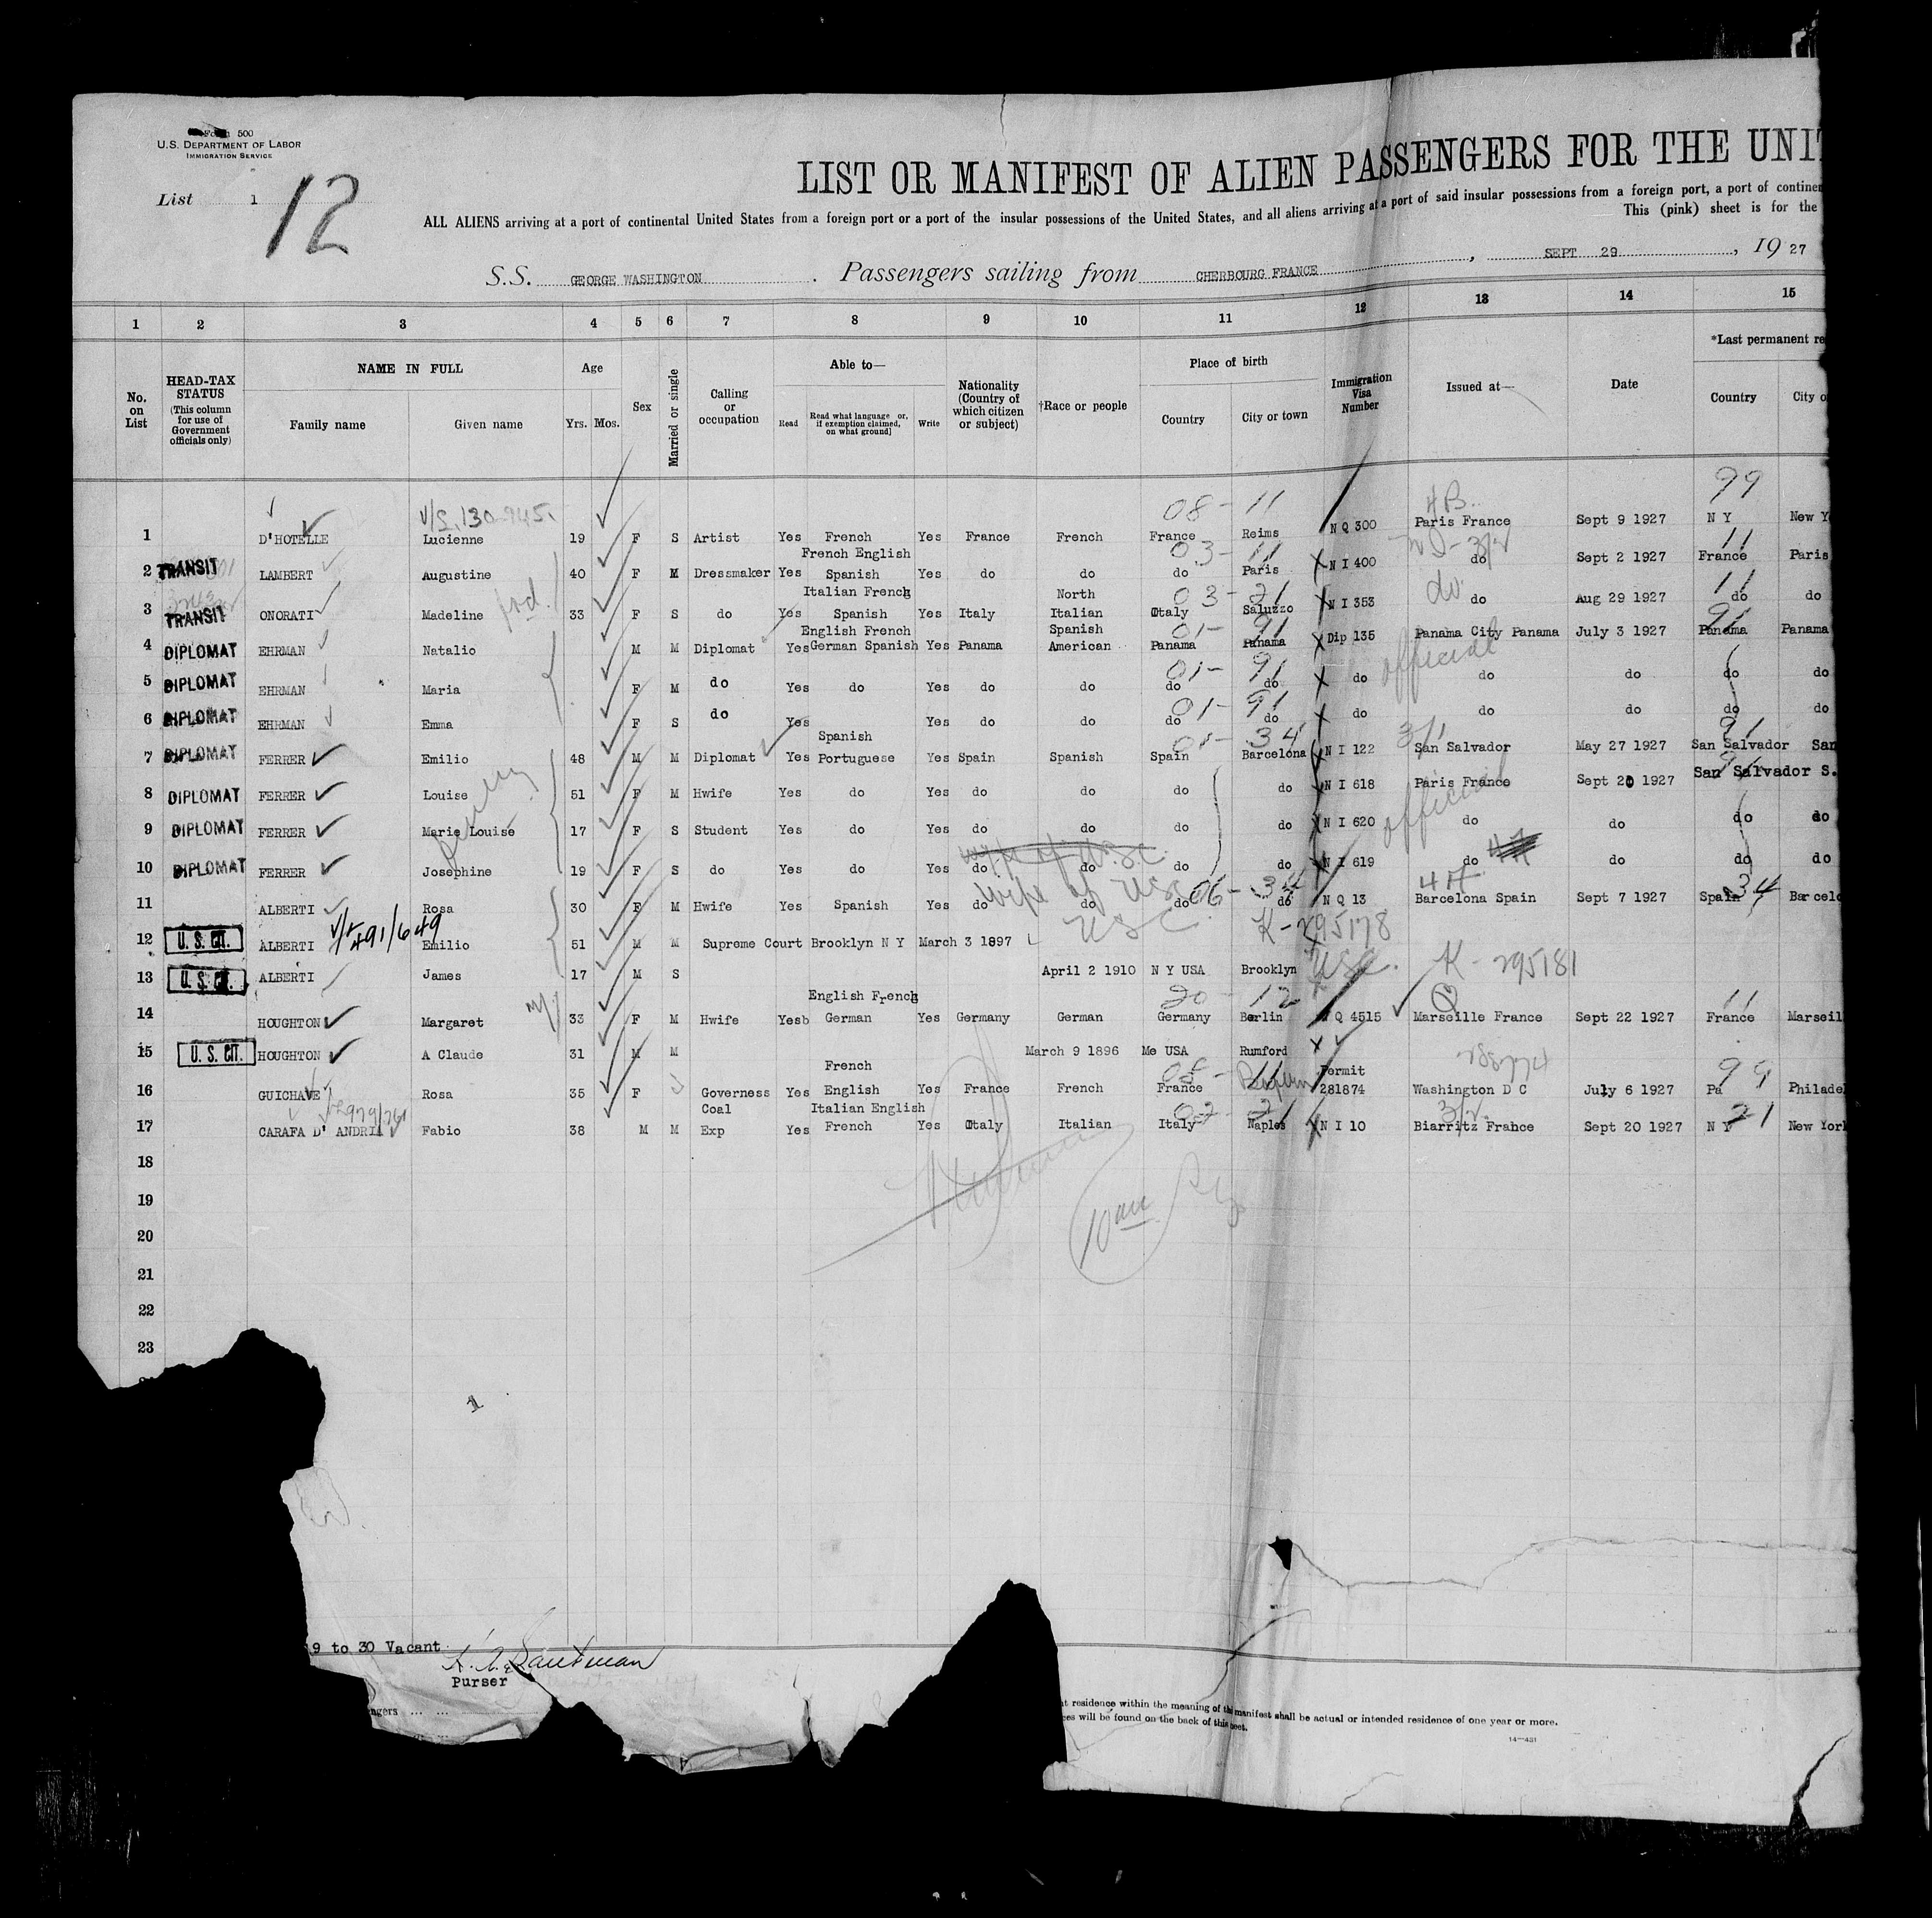 Form 500
U.S. DEPARTMENT OF LABOR
IMMIGRATION SERVICE
List 1
12
LIST OR MANIFEST OF ALIEN PASSENGERS FOR THE UNIT
ALL ALIENS arriving at a port of continental United States from a foreign port or a port of the insular possessions of the United States, and all aliens arriving at a port of said insular possessions from a foreign port, a port of continen
This (pink) sheet is for the
S.S. GEORGE WASHINGTON . Passengers sailing from CHERBOURG FRANCE , SEPT 29 , 19 27
1 2 3 4 5 6 7 8 9 10 11 12 13 14 15
No. on List
HEAD-TAX STATUS (This column for use of Government officials only)
NAME IN FULL
Family name Given name
Age
Yrs. Mos.
Sex
Married or single
Calling or occupation
Able to—
Read Read what language [or, if exemption claimed, on what ground] Write
Nationality (Country of which citizen or subject)
†Race or people
Place of birth
Country City or town
Immigration Visa Number
Issued at—
Date
*Last permanent re
Country City o
V/S. 130-945. 08-11 HB. 99
1 D'HOTELLE Lucienne 19 F S Artist Yes French Yes France French France Reims N Q 300 Paris France Sept 9 1927 N Y New Y
French English 03-11 11
2 TRANSIT LAMBERT Augustine 40 F M Dressmaker Yes Spanish Yes do do do Paris N I 400 do Sept 2 1927 France Paris
Italian French North 03-21 do. 11
3 TRANSIT ONORATI Madeline 33 F S do Yes Spanish Yes Italy Italian Italy Saluzzo N I 353 do Aug 29 1927 do do
English French Spanish 01-91 91
4 DIPLOMAT EHRMAN Natalio M M Diplomat Yes German Spanish Yes Panama American Panama Panama Dip 135 Panama City Panama July 3 1927 Panama Panama
official
01-91
5 DIPLOMAT EHRMAN Maria F M do Yes do Yes do do do do do do do do do
01-91
6 DIPLOMAT EHRMAN Emma F S do Yes Yes do do do do do do do do do
Spanish 01-34 3/1 91
7 DIPLOMAT FERRER Emilio 48 M M Diplomat Yes Portuguese Yes Spain Spanish Spain Barcelona N I 122 San Salvador May 27 1927 San Salvador San
91
8 DIPLOMAT FERRER Louise 51 F M Hwife Yes do Yes do do do do N I 618 Paris France Sept 20 1927 San Salvador S.
official
9 DIPLOMAT FERRER Marie Louise 17 F S Student Yes do Yes do do do do N I 620 do do do do
wife of U.S.C.
10 DIPLOMAT FERRER Josephine 19 F S do Yes do Yes do do do do N I 619 do do do do
wife of USC 06-34 4H. 34
11 ALBERTI Rosa 30 F M Hwife Yes Spanish Yes do do do do N Q 13 Barcelona Spain Sept 7 1927 Spain Barcelo
491/649 USC K-295178
12 U.S. CIT. ALBERTI Emilio 51 M M Supreme Court Brooklyn N Y March 3 1897
13 U.S. CIT. ALBERTI James 17 M S April 2 1910 N Y USA Brooklyn USC. K-295181
English French 20-12 11
14 HOUGHTON Margaret 33 F M Hwife Yesb German Yes Germany German Germany Berlin N Q 4515 Marseille France Sept 22 1927 France Marseil
15 U.S. CIT. HOUGHTON A Claude 31 M M March 9 1896 Me USA Rumford
French 08-11 Permit 99
16 GUICHAVE Rosa 35 F Governess Yes English Yes France French France 281874 Washington D C July 6 1927 Pa Philadel
979/261 Coal Italian English 02-21 3/2. 21
17 CARAFA D' ANDRIA Fabio 38 M M Exp Yes French Yes Italy Italian Italy Naples N I 10 Biarritz France Sept 20 1927 N Y New York
18
19
20
21
22
23
1
9 to 30 Vacant
Purser
ngers ... ...
t residence within the meaning of this manifest shall be actual or intended residence of one year or more.
ces will be found on the back of this sheet.
14—431